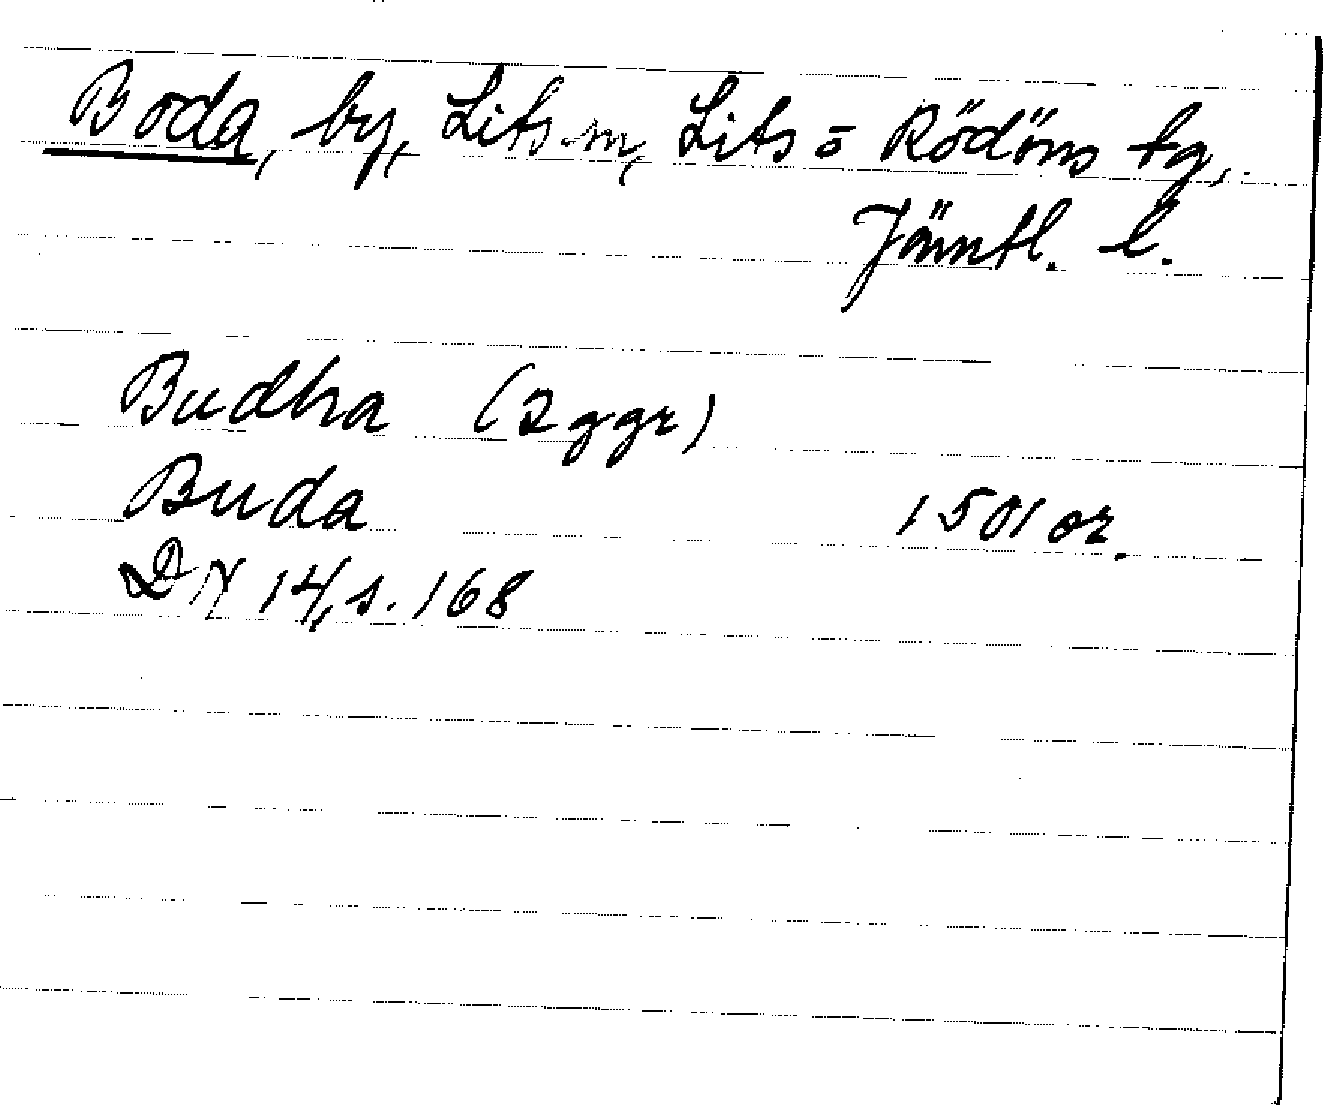 Boda, by, Lits m, Lits = Rödöns tg,
Jämtl. l.
Budha (2 ggr)
Buda 1501 or.
DN 14, s. 168